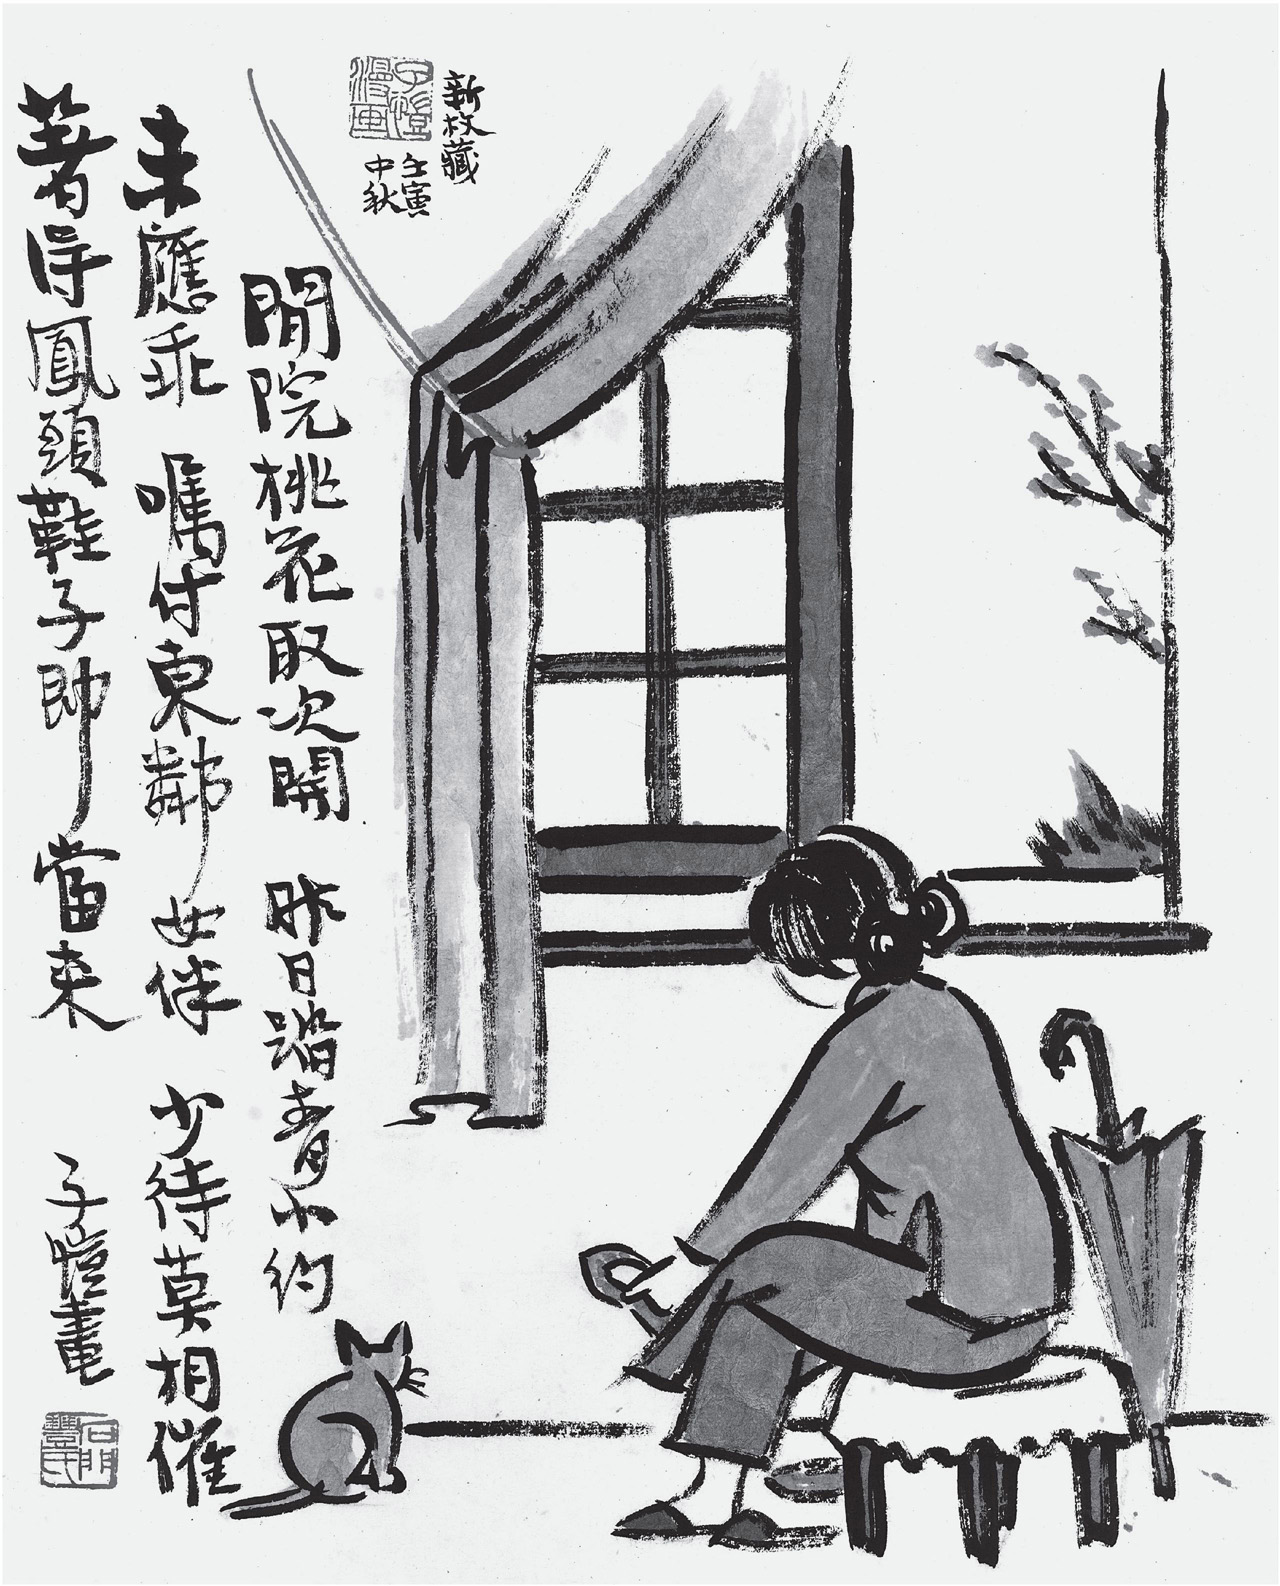 新枚藏
壬寅
中秋
子愷
漫画
閒院桃花取次開 昨日踏青小約
未應乖 嘱付東鄰女伴 少待莫相催
著得鳳頭鞋子即當来
子愷畫
石門
豐氏